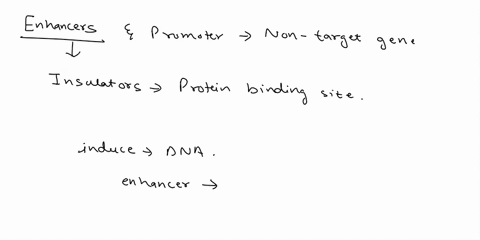 Enhancers & Promoter → Non-target gene
↓
Insulators → Protein binding site.
induce → DNA.
enhancer →